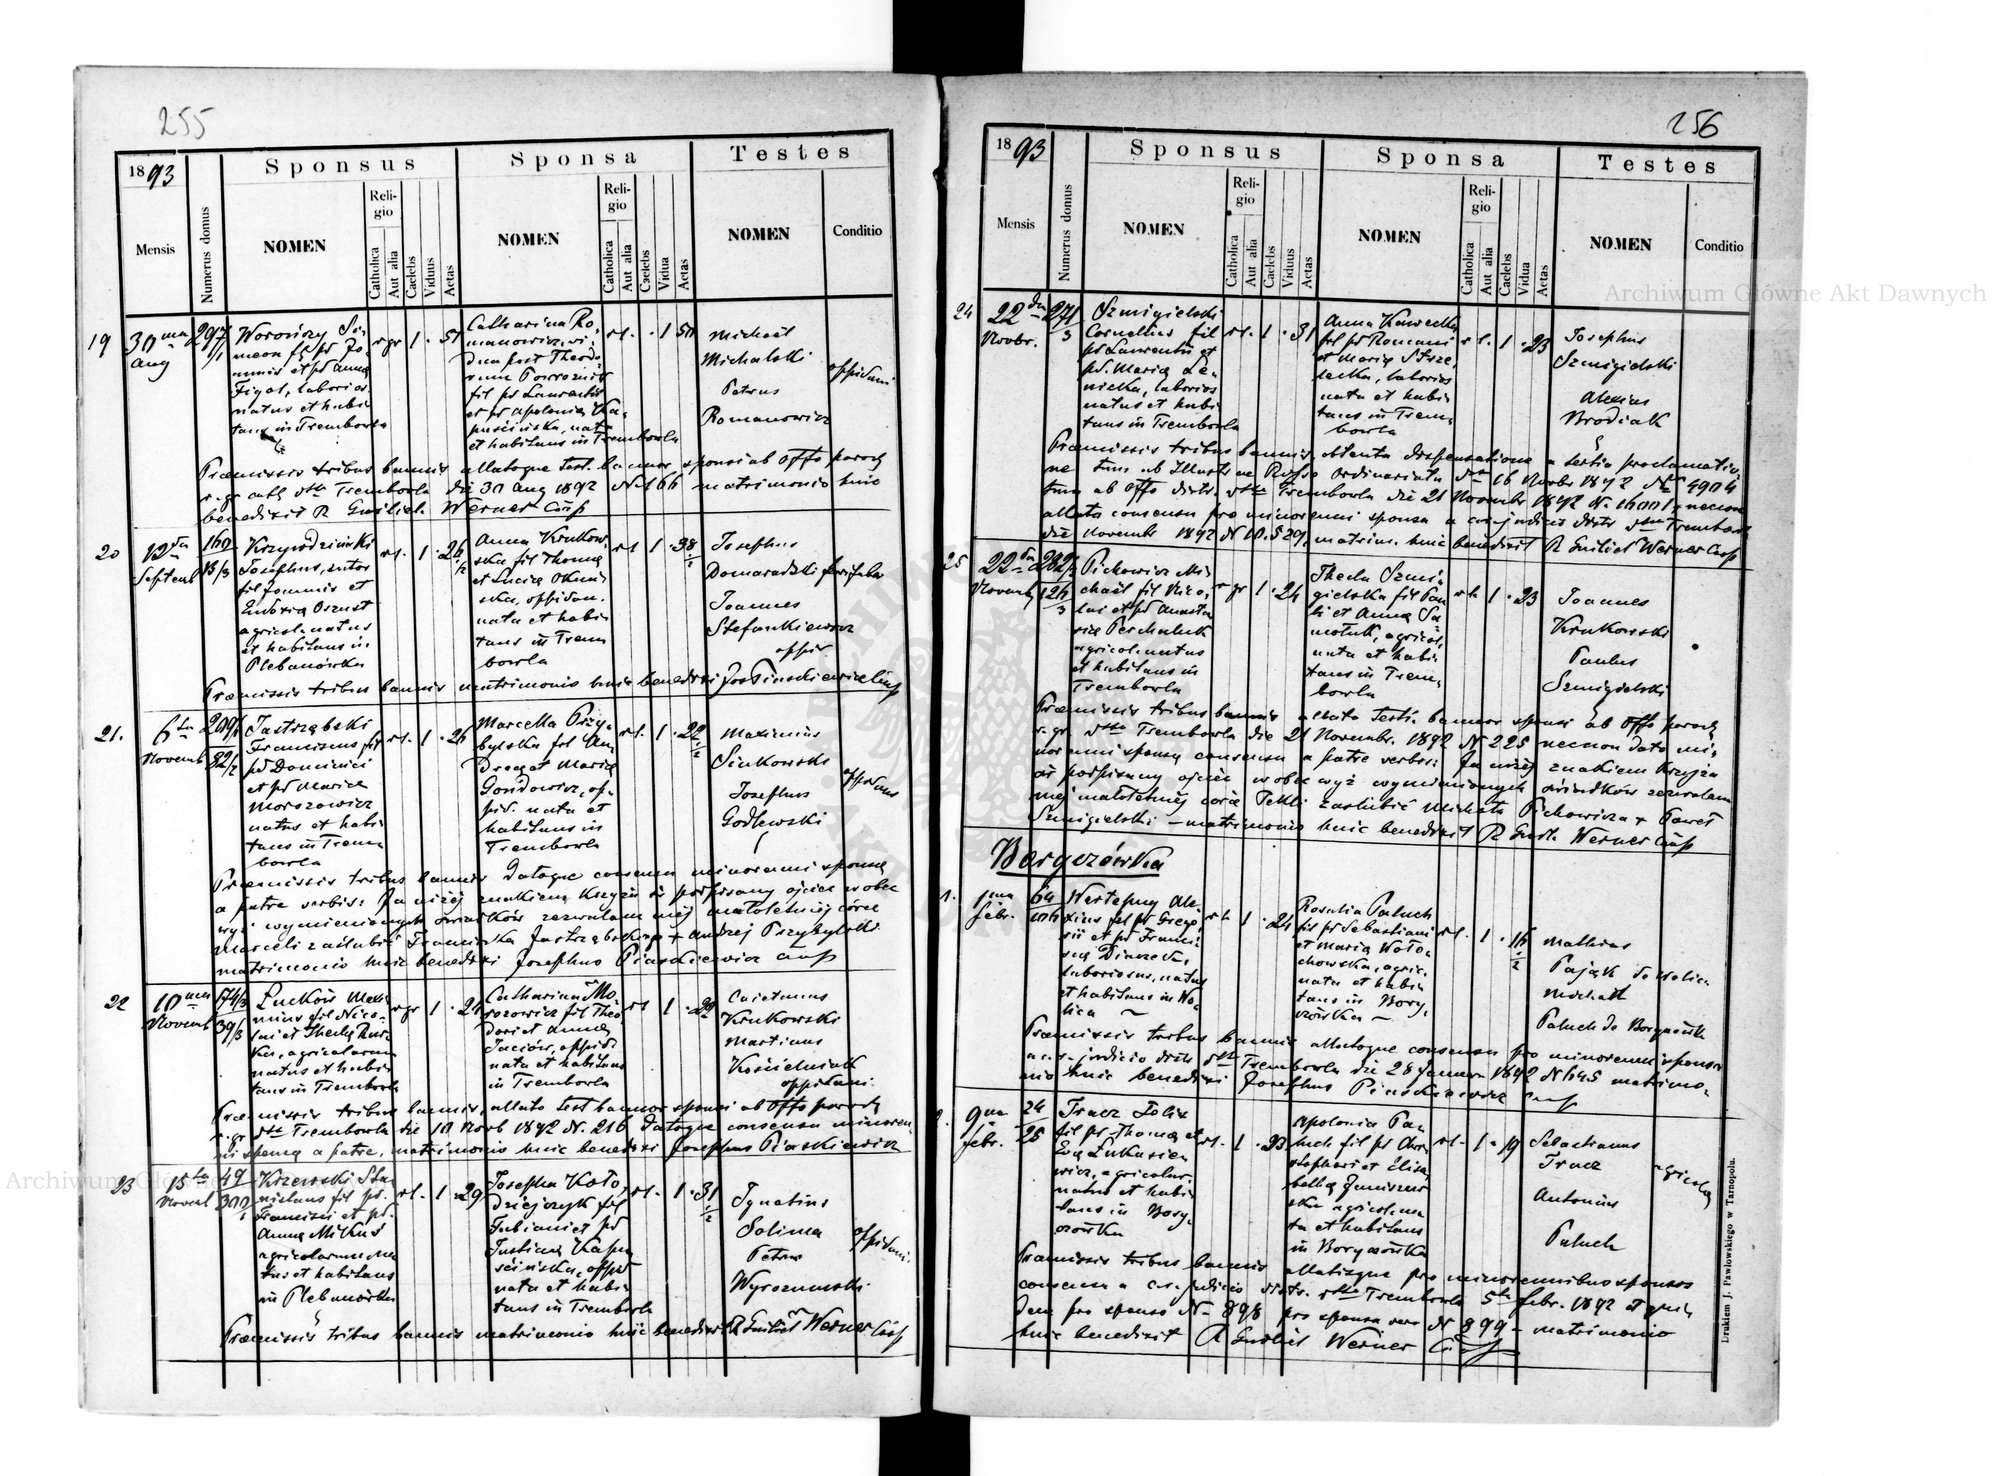 255
1893
Sponsus
Sponsa
Testes
Mensis
Numerus domus
NOMEN
Religio
Catholica
Aut alia
Caelebs
Viduus
Aetas
NOMEN
Religio
Catholica
Aut alia
Caelebs
Vidua
Aetas
NOMEN
Conditio
19
30 ma
Aug
297/1
Woronżyj Si-
meon fil pd Jo-
annis et pd Anna
Figol, laborios.
natus et habi-
tans in Trembowla
r gr 1 . 51
Catharina Ro-
manowicz, vi-
dua post Theodo-
rum Powroźnik
fil pd Laurentii
et pd Apolonia Ka-
puścińska, nata
et habitans in Trembowla
rl. . 1 50
Michael
Michalski
Petrus
Romanowicz
oppidani
Praemissis tribus bannis allatoque test. bannor. sponsi ab Offo paroch
r. gr cath dtto Trembowla die 30 Aug 1892 N. 166 matrimonio huic
benedixit R Guiliel. Werner Coop
20
12 da
Septemb
160
13/3
Krzywdziński
Josephus, sutor
fil Joannis et
agricol. natus
et habitans in
Plebanówka
rl. 1 . 26 1/2
Anna Krukow-
ska fil Thoma
et Lucia
ska, oppidan.
nata et habi-
tans in Trem
bowla
rl 1 . 38 1/2
Josephus
Domaradzki
Joannes
Stefankiewicz
oppid.
Praemissis tribus bannis matrimonio huic benedixi Jos Piaskiewicz Coop
21.
6 ta
Novemb
209/1
82/2
Jastrzębski
Franciscus fil
pd Dominici
et pd Maria
Morozowicz
natus et habi-
tans in Trem-
bowla
rl. 1 . 26
Marcella Przy-
bylska fil An-
drea et Maria
Gondowicz, op-
pid. nata et
habitans in
Trembowla
rl. 1 . 22 1/2
Maximius
Sinkowski
Josephus
Godlewski
oppidani
Praemissis tribus bannis datoque consensu minorenni sponsa
a patre verbis: Ja niżej znakiem Krzyża ś. podpisany ojciec wobec
wyż wymienionych świadków zezwalam mej małoletniej córce
Marceli zaślubić Franciszka Jastrzębskiego + Andrzej Przybylski
matrimonio huic benedixi Josephus Piaskiewicz Coop
22
10 ma
Novemb
174/3
39/3
Łucków Maxi-
minus fil Nico-
lai et Thecla Rus-
ka, agricolarum
natus et habi-
tans in Trembowla
r gr 1 . 24
Catharina Mo-
rozowicz fil Theo-
dori et Anna
Jaciów, oppid
nata et habitans
in Trembowla
rl 1 . 29
Caietanus
Krukowski
Martinus
Kościelniak
oppidani
Praemissis tribus bannis, allato test bannor sponsi ab Offo paroch
r. gr dtto Trembowla die 10 Novb 1892 N. 216 datoque consensu minoren-
ni sponsa a patre, matrimonio huic benedixi Josephus Piaskiewicz
23
15 ta
Novemb
49
300/1
Krzewski Sta-
nislaus fil pd
Francisci et pd.
Anna Mikuś
agricolarum na-
tus et habitans
in Plebanówka
rl. 1 . 29
Josepha Koło-
dziejczyk fil
Fabiani et pd
Justina Kapu-
ścińska, oppid
nata et habi-
tans in Trembowla
rl. 1 . 31 1/2
Ignatius
Solima
Petrus
Wyrozumski
oppidani.
Praemissis tribus bannis matrimonio huic benedixit R Guiliel Werner Coop
256
1893
Sponsus
Sponsa
Testes
Mensis
Numerus domus
NOMEN
Religio
Catholica
Aut alia
Caelebs
Viduus
Aetas
NOMEN
Religio
Catholica
Aut alia
Caelebs
Vidua
Aetas
NOMEN
Conditio
24
22 da
Novbr.
271
3
Szmigielski
Cornelius fil
pd Laurentii et
pd. Maria Le-
nicka, laborios
natus et habi-
tans in Trembowla
rl. 1 . 31
Anna Kawecka
fil pd Romani
et Maria Strze-
lecka, laborios
nata et habi-
tans in Trem-
bowla
rl. 1 . 23
Josephus
Szmigielski
Alexius
Brodiak
Praemissis tribus bannis, obtenta dispensatione a tertia proclamatio-
ne tum ab Illustr ac Rdsso Ordinariatu dto 16 Novbr 1892 No 4904
tum ab Offo distr. dtto Trembowla die 21 Novembr 1892 N. 16001, necnon
allato consensu pro minorenni sponsa a c. r. judicio distr dtto Trembowla
die Novembr 1892 N 10.529, matrim. huic benedixit R Guiliel Werner Coop
25
22 da
Novemb
282/1
126/3
Pichowicz Mi-
chael fil Nico-
lai et pd Anasta-
sia Perchaluk
agricol. natus
et habitans in
Trembowla
r gr 1 . 24
Thecla Szmi-
gielska fil Pau-
li et Anna Sa-
motuk, agricol.
nata et habi-
tans in Trem-
bowla
rl. 1 . 23
Joannes
Krukowski
Paulus
Szmigielski
Praemissis tribus bannis allato testi. bannor sponsi ab Offo paroch
r. gr. dtto Trembowla die 21 Novembr. 1892 N 225 necnon dato mi-
norenni sponsa consensu a patre verbis: Ja niżej znakiem Krzyża
ś. podpisany ojciec wobec wyż wymienionych świadków zezwalam
mej małoletniej córce Tekli zaślubić Michała Pichowicza + Paweł
Szmigielski – matrimonio huic benedixit R Guil. Werner Coop
Boryczówka
1.
1 ma
Febr.
64
104
Wertepny Ale-
xius fil pd Grego-
rii et pd Franci-
sca
laboriosus, natus
et habitans in Wo-
lica
rl. 1 . 24
Rosalia Paluch
fil pd Sebastiani
et Maria Woło-
chowska, agric.
nata et habi-
tans in Bory-
czówka
rl. 1 . 16 1/2
Mathias
Pająk de Wolica
Michael
Paluch de Boryczówka
Praemissis tribus bannis allatoque consensu pro minorenni sponsa
a c. r. judicio distr dtto Trembowla die 28 Januar 1892 N 645 matrimo-
nio huic benedixi Josephus Piaskiewicz Coop
2.
9 na
Febr.
24
25
Tracz Felix
fil pd Thoma et
Eva Łukasie-
wicz, agricolar.
natus et habi-
tans in Bory-
czówka
rl. 1 . 23
Apolonia Pa-
luch fil pd Chri-
stophori et Elisa-
betha Janiszew-
ska agricol. na-
ta et habitans
in Boryczówka
rl. 1 . 19
Sebastianus
Tracz
Antonius
Paluch
agricolae
Praemissis tribus bannis allatisque pro minorennibus sponsis
consensu a c. r. judicio distr. dtto Trembowla 5ta Febr. 1892 et quidem
pro sponso N. 898 pro sponsa vero N 899 – matrimonio
huic benedixit R Guiliel Werner Coop
Drukiem J. Pawłowskiego w Tarnopolu.
Archiwum Główne Akt Dawnych
Archiwum Główne Akt Dawnych